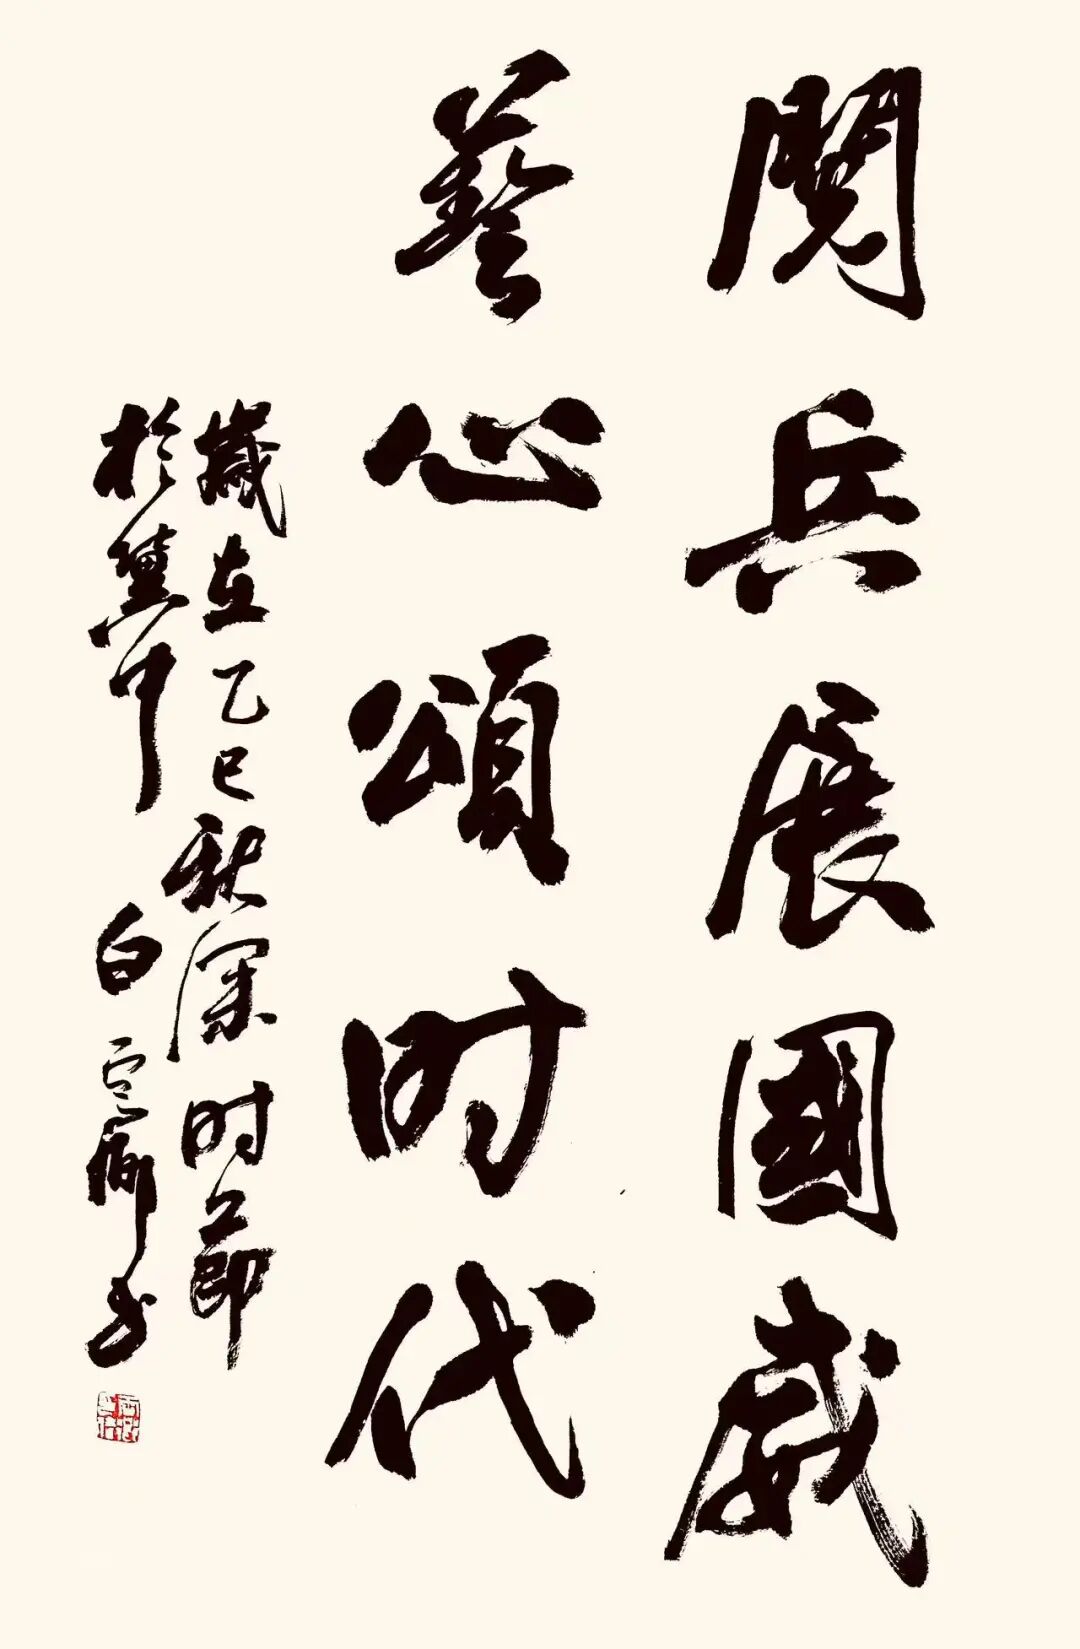 閱兵展國威
藝心頌时代
歲在乙巳秋深时節
於冀中白雲鄉书